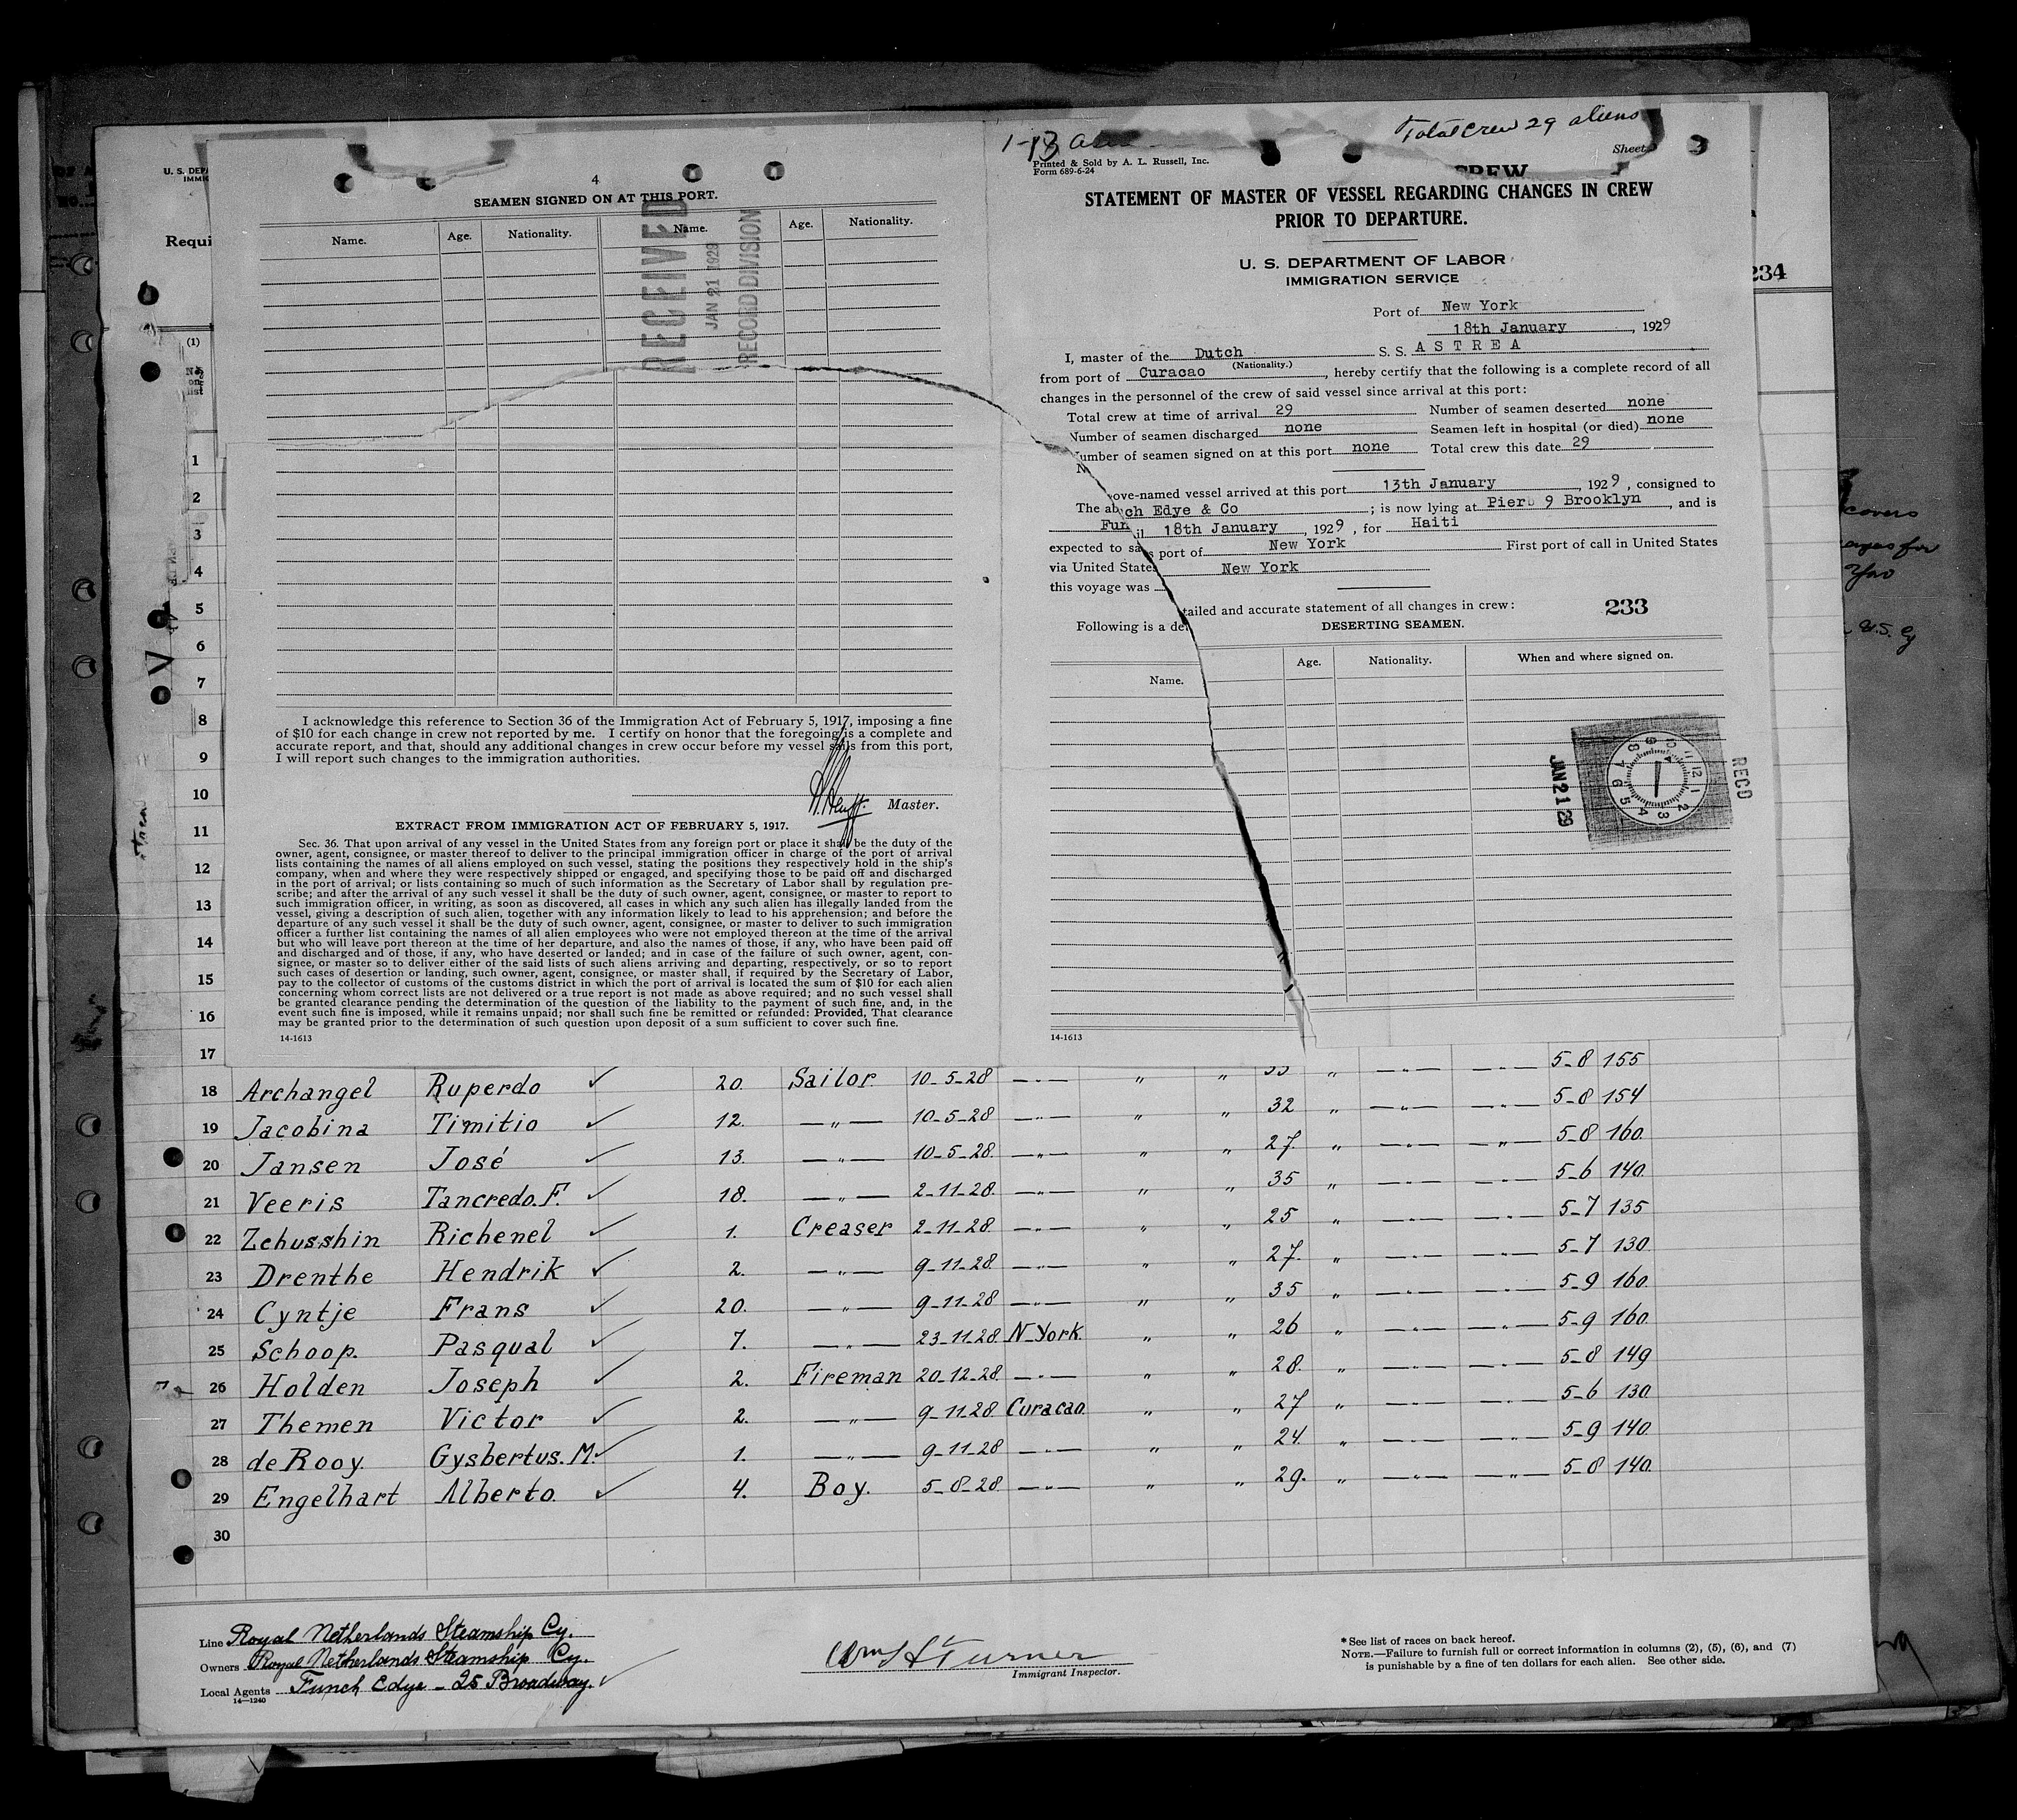 Total Crew 29 aliens
Sheet
CREW
U. S. DEPA
IMMIG
Requi
(1)
No.
on
list
4
SEAMEN SIGNED ON AT THIS PORT.
Name. Age. Nationality. Name. Age. Nationality.
RECEIVED
JAN 21 1929
RECORD DIVISION
I acknowledge this reference to Section 36 of the Immigration Act of February 5, 1917, imposing a fine
of $10 for each change in crew not reported by me. I certify on honor that the foregoing is a complete and
accurate report, and that, should any additional changes in crew occur before my vessel sails from this port,
I will report such changes to the immigration authorities.
Master.
EXTRACT FROM IMMIGRATION ACT OF FEBRUARY 5, 1917.
Sec. 36. That upon arrival of any vessel in the United States from any foreign port or place it shall be the duty of the
owner, agent, consignee, or master thereof to deliver to the principal immigration officer in charge of the port of arrival
lists containing the names of all aliens employed on such vessel, stating the positions they respectively hold in the ship's
company, when and where they were respectively shipped or engaged, and specifying those to be paid off and discharged
in the port of arrival; or lists containing so much of such information as the Secretary of Labor shall by regulation pre-
scribe; and after the arrival of any such vessel it shall be the duty of such owner, agent, consignee, or master to report to
such immigration officer, in writing, as soon as discovered, all cases in which any such alien has illegally landed from the
vessel, giving a description of such alien, together with any information likely to lead to his apprehension; and before the
departure of any such vessel it shall be the duty of such owner, agent, consignee, or master to deliver to such immigration
officer a further list containing the names of all alien employees who were not employed thereon at the time of the arrival
but who will leave port thereon at the time of her departure, and also the names of those, if any, who have been paid off
and discharged and of those, if any, who have deserted or landed; and in case of the failure of such owner, agent, con-
signee, or master so to deliver either of the said lists of such aliens arriving and departing, respectively, or so to report
such cases of desertion or landing, such owner, agent, consignee, or master shall, if required by the Secretary of Labor,
pay to the collector of customs of the customs district in which the port of arrival is located the sum of $10 for each alien
concerning whom correct lists are not delivered or a true report is not made as above required; and no such vessel shall
be granted clearance pending the determination of the question of the liability to the payment of such fine, and, in the
event such fine is imposed, while it remains unpaid; nor shall such fine be remitted or refunded: Provided, That clearance
may be granted prior to the determination of such question upon deposit of a sum sufficient to cover such fine.
14-1613
1-13
Printed & Sold by A. L. Russell, Inc.
Form 689-6-24
STATEMENT OF MASTER OF VESSEL REGARDING CHANGES IN CREW
PRIOR TO DEPARTURE.
U. S. DEPARTMENT OF LABOR
IMMIGRATION SERVICE
234
Port of New York
18th January, 1929
I, master of the Dutch S. S. ASTREA
(Nationality.)
from port of Curacao, hereby certify that the following is a complete record of all
changes in the personnel of the crew of said vessel since arrival at this port:
Total crew at time of arrival 29 Number of seamen deserted none
Number of seamen discharged none Seamen left in hospital (or died) none
Number of seamen signed on at this port none Total crew this date 29
The above-named vessel arrived at this port 13th January, 1929, consigned to
Funch Edye & Co; is now lying at Pier 9 Brooklyn, and is
expected to sail 18th January, 1929, for Haiti
via United States port of New York First port of call in United States
this voyage was New York
Following is a detailed and accurate statement of all changes in crew: 233
DESERTING SEAMEN.
Name. Age. Nationality. When and where signed on.
RECD
JAN 21 29
14-1613
1
2
3
4
5
6
7
8
9
10
11
12
13
14
15
16
17 5-8 155
18 Archangel Ruperdo ✓ 20 Sailor 10-5-28 —"— " " 33 " —"— —"— 5-8 154
19 Jacobina Timitio ✓ 12. —"— 10-5-28 —"— " " 32 " —"— —"— 5-8 160
20 Jansen José ✓ 13. —"— 10-5-28. —"— " " 27. " —"— —"— 5-6 140
21 Veeris Tancredo. F. ✓ 18. —"— 2-11-28. —"— " " 35 " —"— —"— 5-7 135
22 Zehusshin Richenel ✓ 1. Creaser 2-11-28 —"— " " 25 " —"— —"— 5-7 130
23 Drenthe Hendrik ✓ 2. —"— 9-11-28. —"— " " 27. " —"— —"— 5-9 160
24 Cyntje Frans ✓ 20. —"— 9-11-28 —"— " " 35 " —"— —"— 5-9 160
25 Schoop. Pasqual ✓ 7. —"— 23-11.28. N-York. " " 26 " —"— —"— 5-8 149
26 Holden Joseph ✓ 2. Fireman 20-12-28. —"— " " 28. " —"— —"— 5-6 130
27 Themen Victor ✓ 2. —"— 9-11.28. Curacao. " " 27 " —"— —"— 5-9 140
28 de Rooy. Gysbertus. M. ✓ 1. —"— 9-11-28 —"— " " 24. " —"— —"— 5-8 140
29 Engelhart Alberto. ✓ 4. Boy. 5-8-28 —"— " " 29. " —"— —"—
30
Line Royal Netherlands Steamship Cy.
Owners Royal Netherlands Steamship Cy.
Local Agents Funch Edye - 25 Broadway. ✓
14-1240
Wm H Turner
Immigrant Inspector.
* See list of races on back hereof.
NOTE.—Failure to furnish full or correct information in columns (2), (5), (6), and (7)
is punishable by a fine of ten dollars for each alien. See other side.